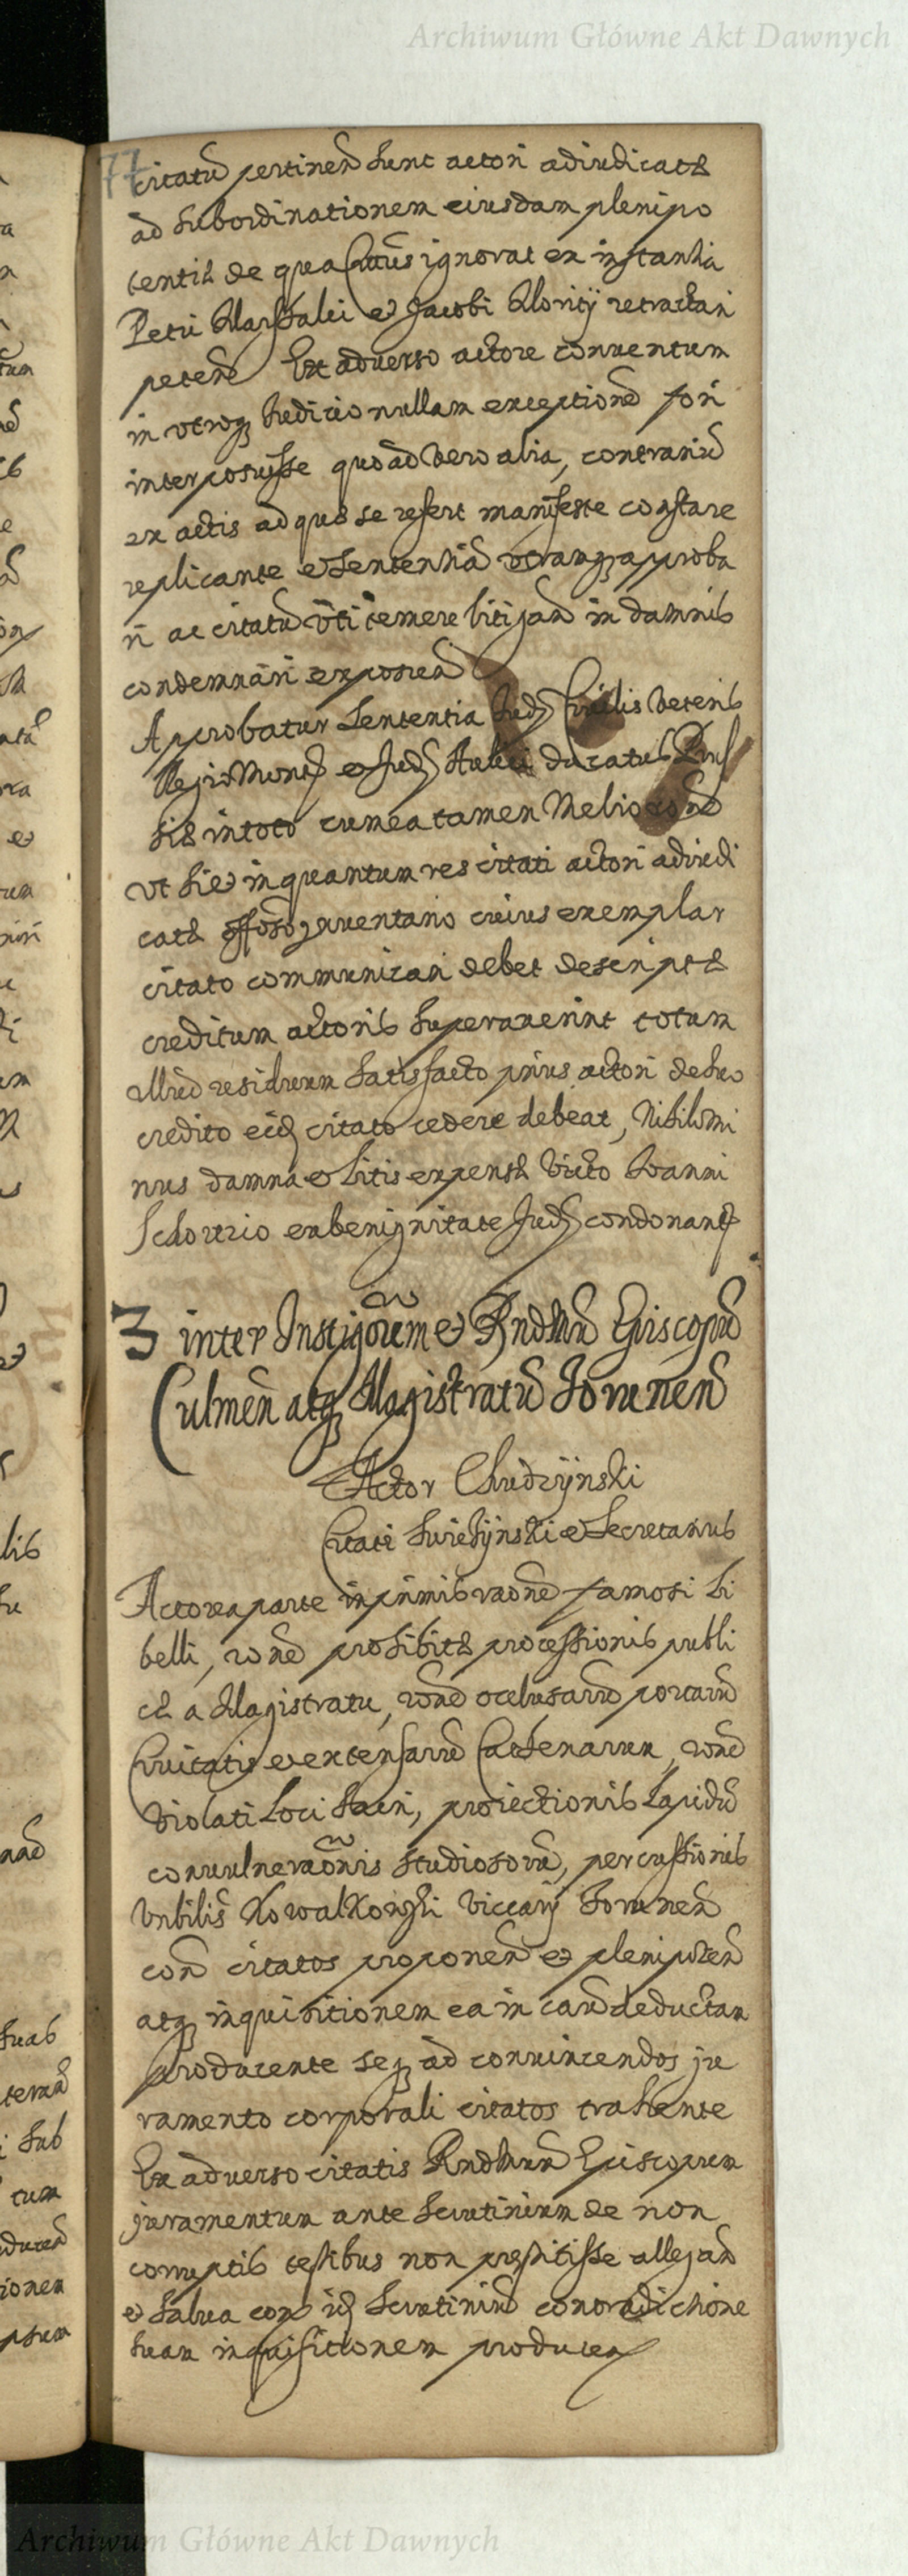 Archiwum Główne Akt Dawnych
77
citatū pertineñ sunt actori adiudicatæ
ad subordinationem eiusdam plenipo
tentis de qua Cittus ignorat ex instantia
Petri et Jacobi retractari
peteñ Ex adverso actore conventum
in utroq; Iudicio nullam exceptionē fori
interposuisse quo ad vero alia, contrariū
ex actis ad quæ se refert manifeste constare
replicante et sententiā utramq; approba
ri ac citatū uti temere litigañ in damnis
condemnari exposceñ
Approbatur sententia Iudÿ Civilis Veteris
Regiomonẽ et Iudÿ Aulici ducatus Prus
siæ in toto cum ea tamen Meliorõne
ut si et in quantum res citati actori adiudi
catæ inventario cuius exemplar
citato communicari debet descriptæ
creditum actoris superaverint totum
illud residuum satisfacto prius actori de suo
credito eidÿ citato cedere debeat, Nihilomi
nus damna et litis expensæ victo Ioanni
ex benignitate Iudÿ condonantÿ
3 inter Instigõrem et Rndmū Episcopū
Culmeñ atq; Magistratū Toruneñ
Actor Chudzÿnski
Citati Swieżÿnski et Secretarius
Actorea parte in primis raõne famosi li
belli, rõne prohibitæ processionis publi
cæ a Magistratu, rõne occlusarū portarū
Civitatis et extensarū Cathenarum, rõne
violati Loci Sacri, proiectionis Lapidū
convulneraõnis studiosorū, percussionis
Vnbilis Kowalkowski viccarÿ Toruneñ
coñ citatos proponeñ et plenipoteñ
atq; inquisitionem ea in caū deductam
producente seq; ad convincendos ju
ramento corporali citatos trahente
Ex adverso citatis Rndmum Episcopum
juramentum ante scrutinium de non
corruptis testibus non præstitisse allegañ
et salva coñ id; scrutiniū contradictione
suam inquisitionem produceñ
Archiwum Główne Akt Dawnych